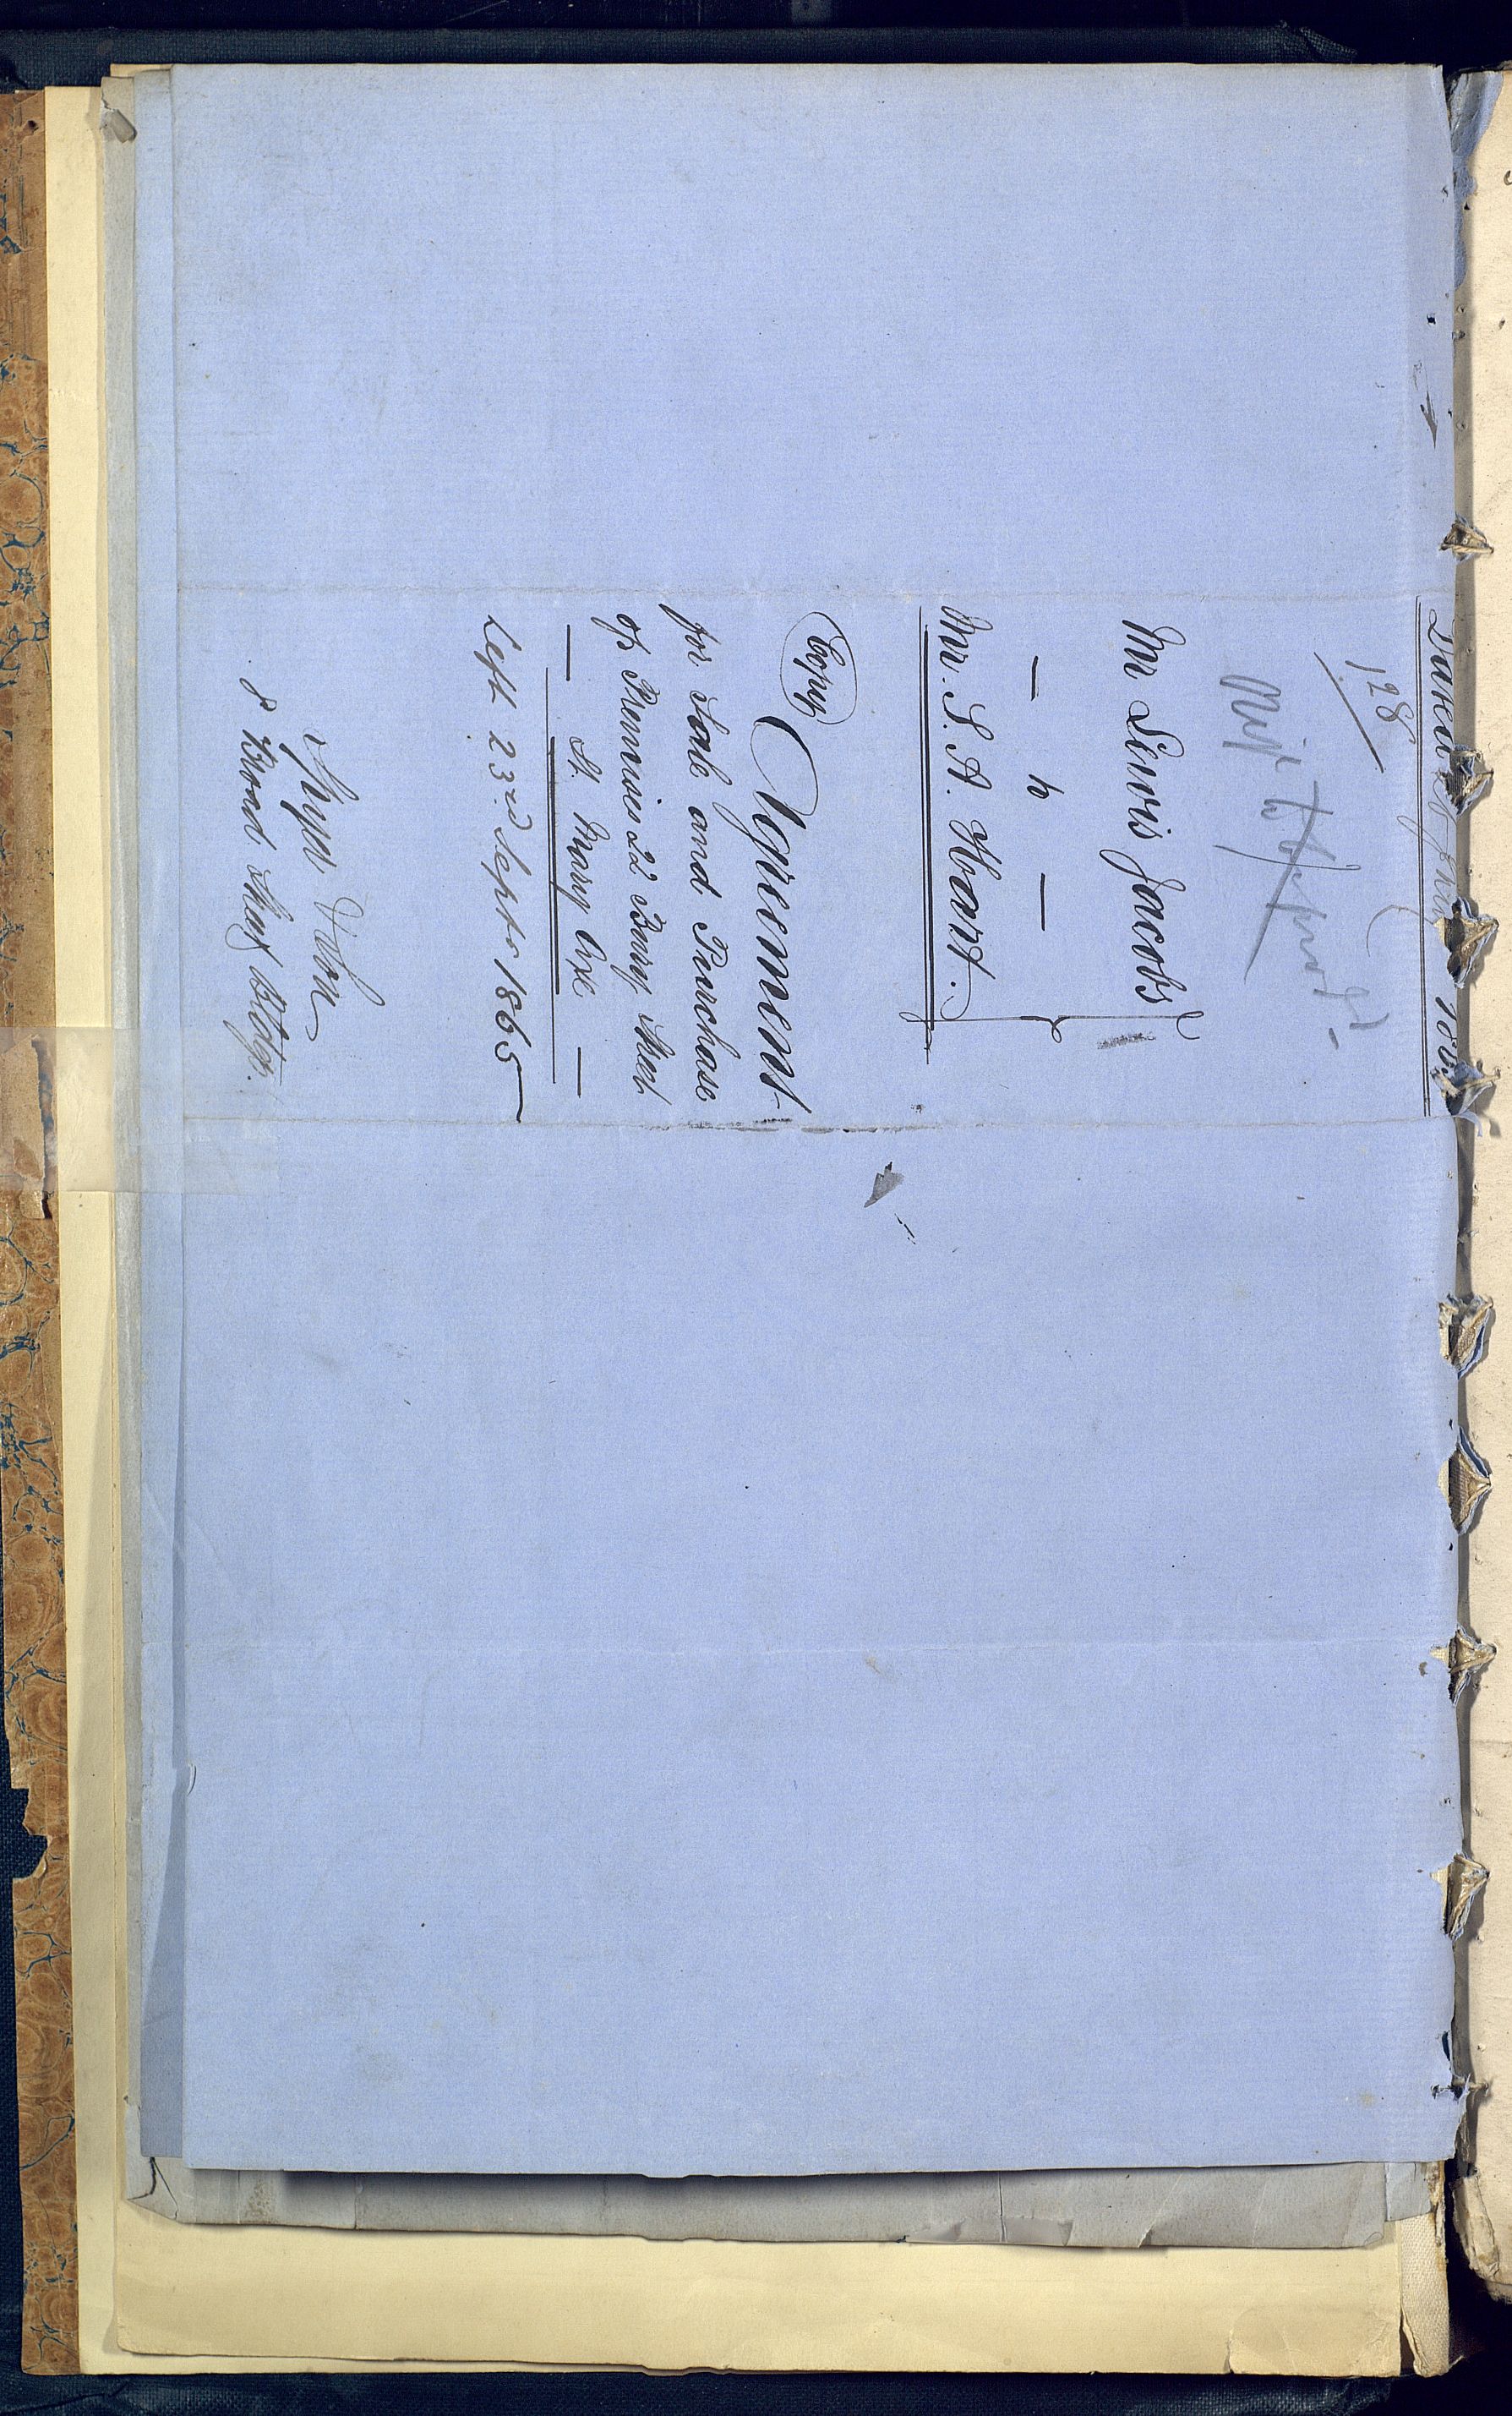 Dated
128
Mr Lewis Jacobs
— to —
Mr. S. A. Hart.
Copy
Agreement
for Sale and Purchase
of Premises 22 Bury Street
— St. Mary Axe —
Left 23rd Septr 1865
& Son
8 Broad Street Bldgs.